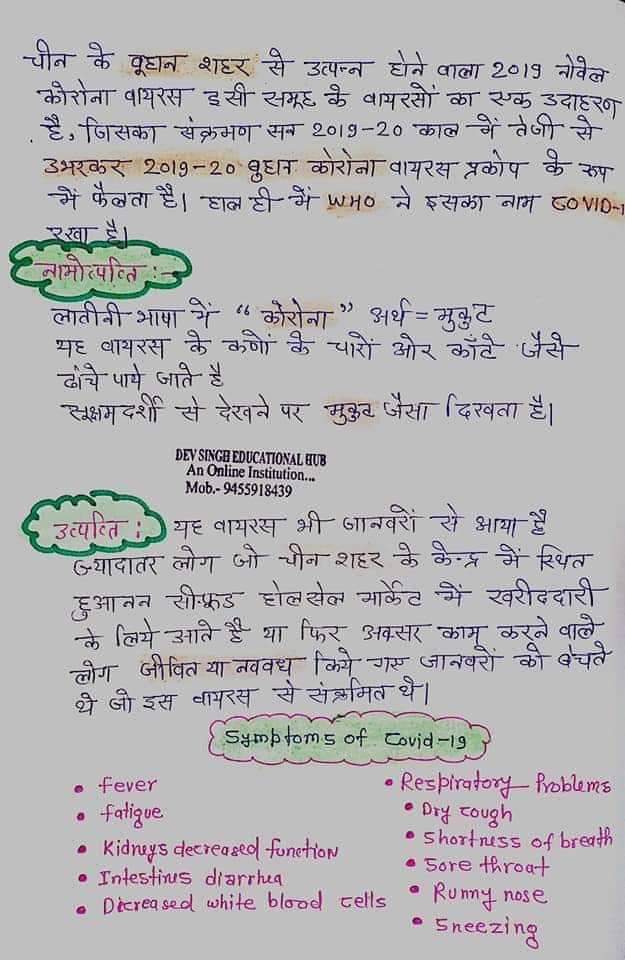 चीन के वूहान शहर से उत्पन्न होने वाला 2019 नोवेल
कोरोना वायरस इसी समूह के वायरसों का एक उदाहरण
है, जिसका संक्रमण सन 2019-20 काल में तेजी से
उभरकर 2019-20 वुहान कोरोना वायरस प्रकोप के रूप
में फैलता है। हाल ही में WHO ने इसका नाम COVID-1
रखा है।
नामोत्पत्ति :-
लातीनी भाषा में "कोरोना" अर्थ = मुकुट
यह वायरस के कणों के चारों ओर काँटे जैसे
ढांचे पाये जाते है
सूक्षमदर्शी से देखने पर मुकुट जैसा दिखता है।
DEV SINGH EDUCATIONAL HUB
An Online Institution...
Mob.- 9455918439
उत्पत्ति : यह वायरस भी जानवरों से आया है
ज्यादातर लोग जो चीन शहर के केन्द्र में स्थित
हुआनन सीफूड होलसेल मार्केट में खरीददारी
के लिये आते है या फिर अक्सर काम करने वाले
लोग जीवित या नववध किये गए जानवरों को बेचते
थे जो इस वायरस से संक्रमित थे।
Symptoms of Covid-19
• fever
• fatigue
• Kidneys decreased function
• Intestinus diarrhea
• Dicreased white blood cells
• Respiratory Problems
• Dry cough
• Shortness of breath
• Sore throat
• Runny nose
• Sneezing